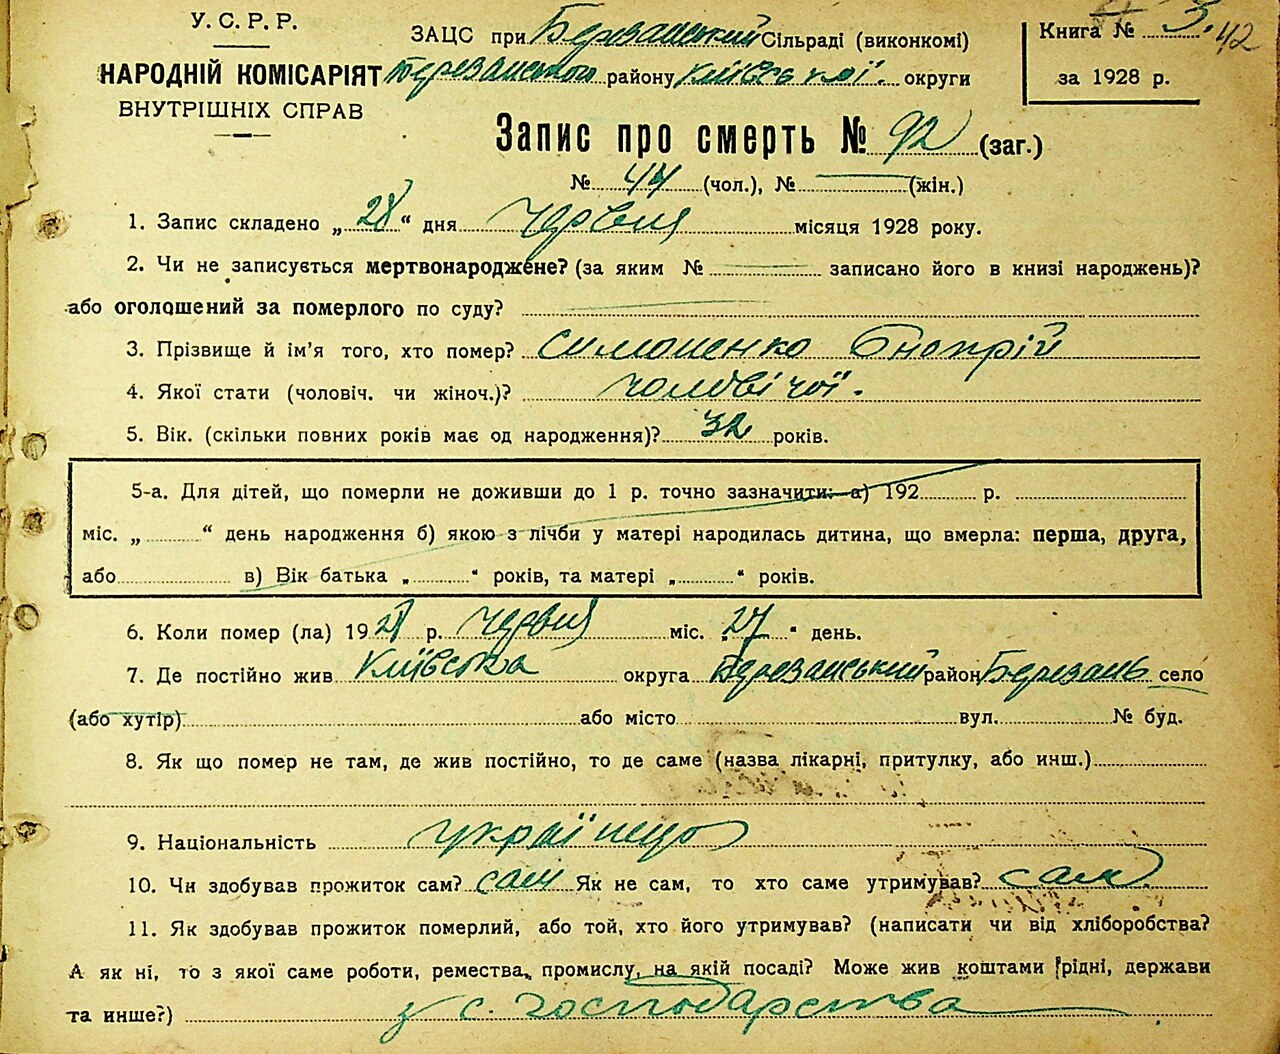 У. С. Р. Р.
НАРОДНІЙ КОМІСАРІЯТ
ВНУТРІШНІХ СПРАВ
ЗАЦС при Березанський Сільраді (виконкомі)
Березанського району Київської округи
Книга № 3. 42
за 1928 р.
Запис про смерть № 92 (заг.)
№ 44 (чол.), № (жін.)
1. Запис складено „28“ дня червня місяця 1928 року.
2. Чи не записується мертвонароджене? (за яким № записано його в книзі народжень)?
або оголошений за померлого по суду?
3. Прізвище й ім'я того, хто помер? Симоненко Онопрій
4. Якої стати (чоловіч. чи жіноч.)? чоловічої.
5. Вік. (скільки повних років має од народження)? 32 років.
5-а. Для дітей, що померли не доживши до 1 р. точно зазначити: а) 192 р.
міс. „ “ день народження б) якою з лічби у матері народилась дитина, що вмерла: перша, друга,
або в) Вік батька „ “ років, та матері „ “ років.
6. Коли помер (ла) 1928 р. червня міс. „27“ день.
7. Де постійно жив Київська округа Березанський район Березань село
(або хутір) або місто вул. № буд.
8. Як що помер не там, де жив постійно, то де саме (назва лікарні, притулку, або инш.)
9. Національність українець
10. Чи здобував прожиток сам? сам Як не сам, то хто саме утримував? сам
11. Як здобував прожиток померлий, або той, хто його утримував? (написати чи від хліборобства?
А як ні, то з якої саме роботи, ремества, промислу, на якій посаді? Може жив коштами рідні, держави
та инше?) з с. господарства